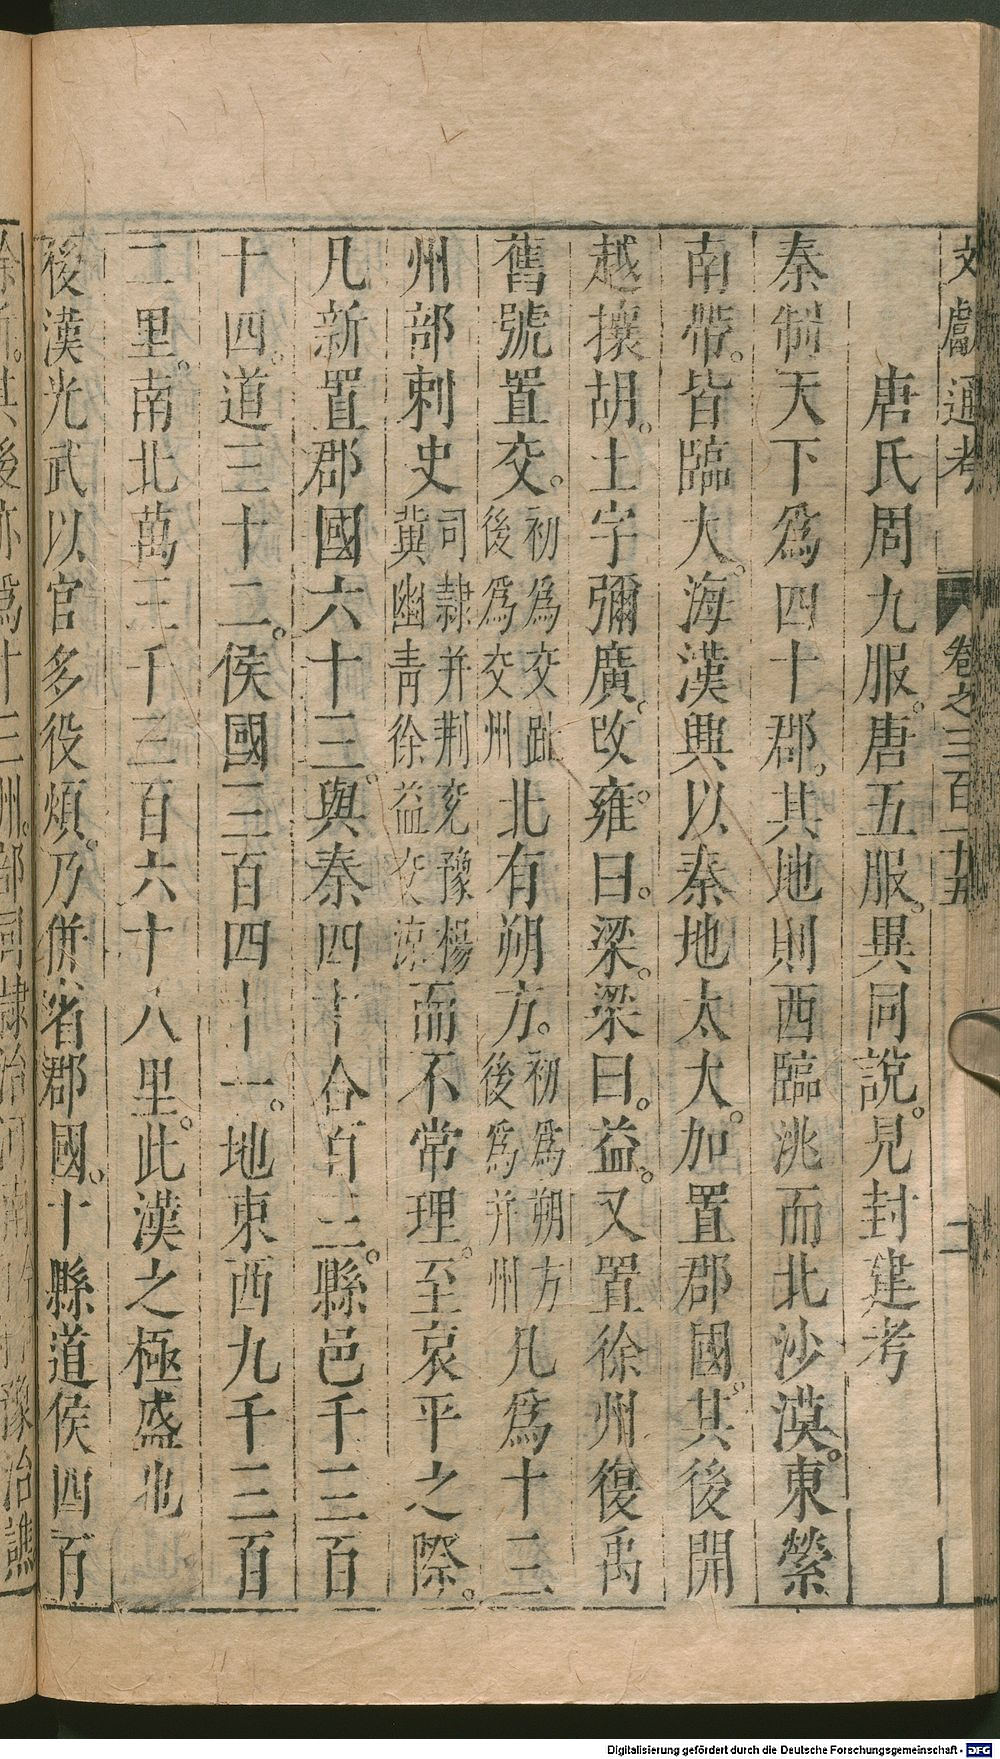 文獻通考 卷之三百十五 二
唐氏周九服。唐五服。異同說。見封建考
秦制天下爲四十郡。其地則西臨洮而北沙漠。東縈
南帶。皆臨大。海漢興以秦地太大。加置郡國。其後開
越攘胡。土宇彌廣。改雍。曰。梁。梁曰。益。又置徐州復禹
舊號置交。初爲交趾後爲交州北有朔方。初爲朔方後爲并州凡爲十三
州部刺史司隸并荆兗豫楊冀幽青徐益交涼而不常理。至哀平之際。
凡新置郡國六十三。與秦四十合百三。縣邑千三百
十四。道三十二。侯國三百四十一。地東西九千三百
二里。南北萬三千三百六十八里。此漢之極盛也
後漢光武以官多役煩。乃併省郡國。十縣道侯四百
餘所。其後亦爲十三州。部司隸治河南 豫治譙
Digitalisierung gefördert durch die Deutsche Forschungsgemeinschaft - DFG